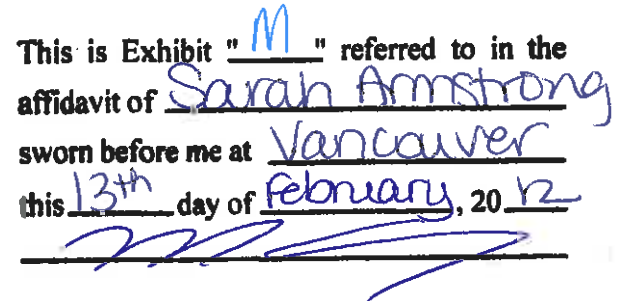 This is Exhibit " M " referred to in the
affidavit of Sarah Armstrong
sworn before me at Vancouver
this 13th day of February, 20 12